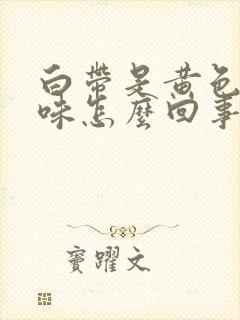 白帶是黃色
味怎麼回事
竇躍文